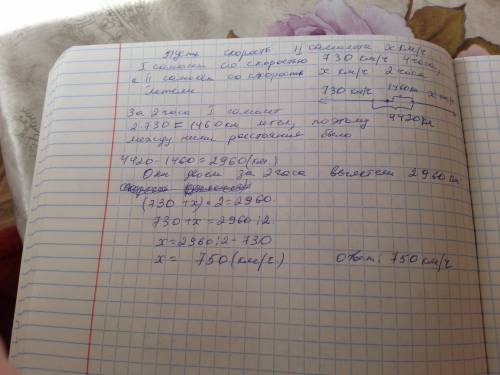 Пусть скорость II самолета x км/ч
I самолет со скоростью 730 км/ч 4 часа,
а II самолет со скорость x км/ч 2 часа
летели
730 км/ч 1460км x км/ч
4420км
За 2 часа I самолет
2·730=1460км летел, поэтому
между ними расстояние было
4420-1460=2960(км.)
Они двоем за 2 часа вылетели 2960 км
(730+x)·2=2960
730+x=2960:2
x=2960:2-730
x= 750(км/ч.) Ответ: 750 км/ч